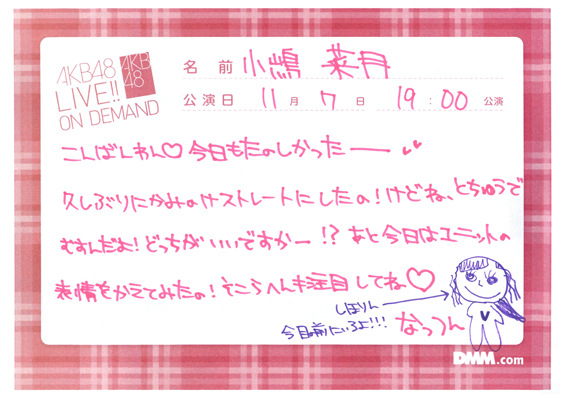 AKB48
LIVE!!
ON DEMAND
AKB
48
名前 小嶋 菜月
公演日 11月7日 19:00 公演
こんばんわん♡今日もたのしかったー
久しぶりにかみのけストレートにしたの!けどね、とちゅうで
むすんだよ!どっちがいいですかー!?あと今日はユニットの
表情をかえてみたの!そこらへんも注目してね♡
しほりん
今目前にいるよ!!!
なっつん
DMM.com